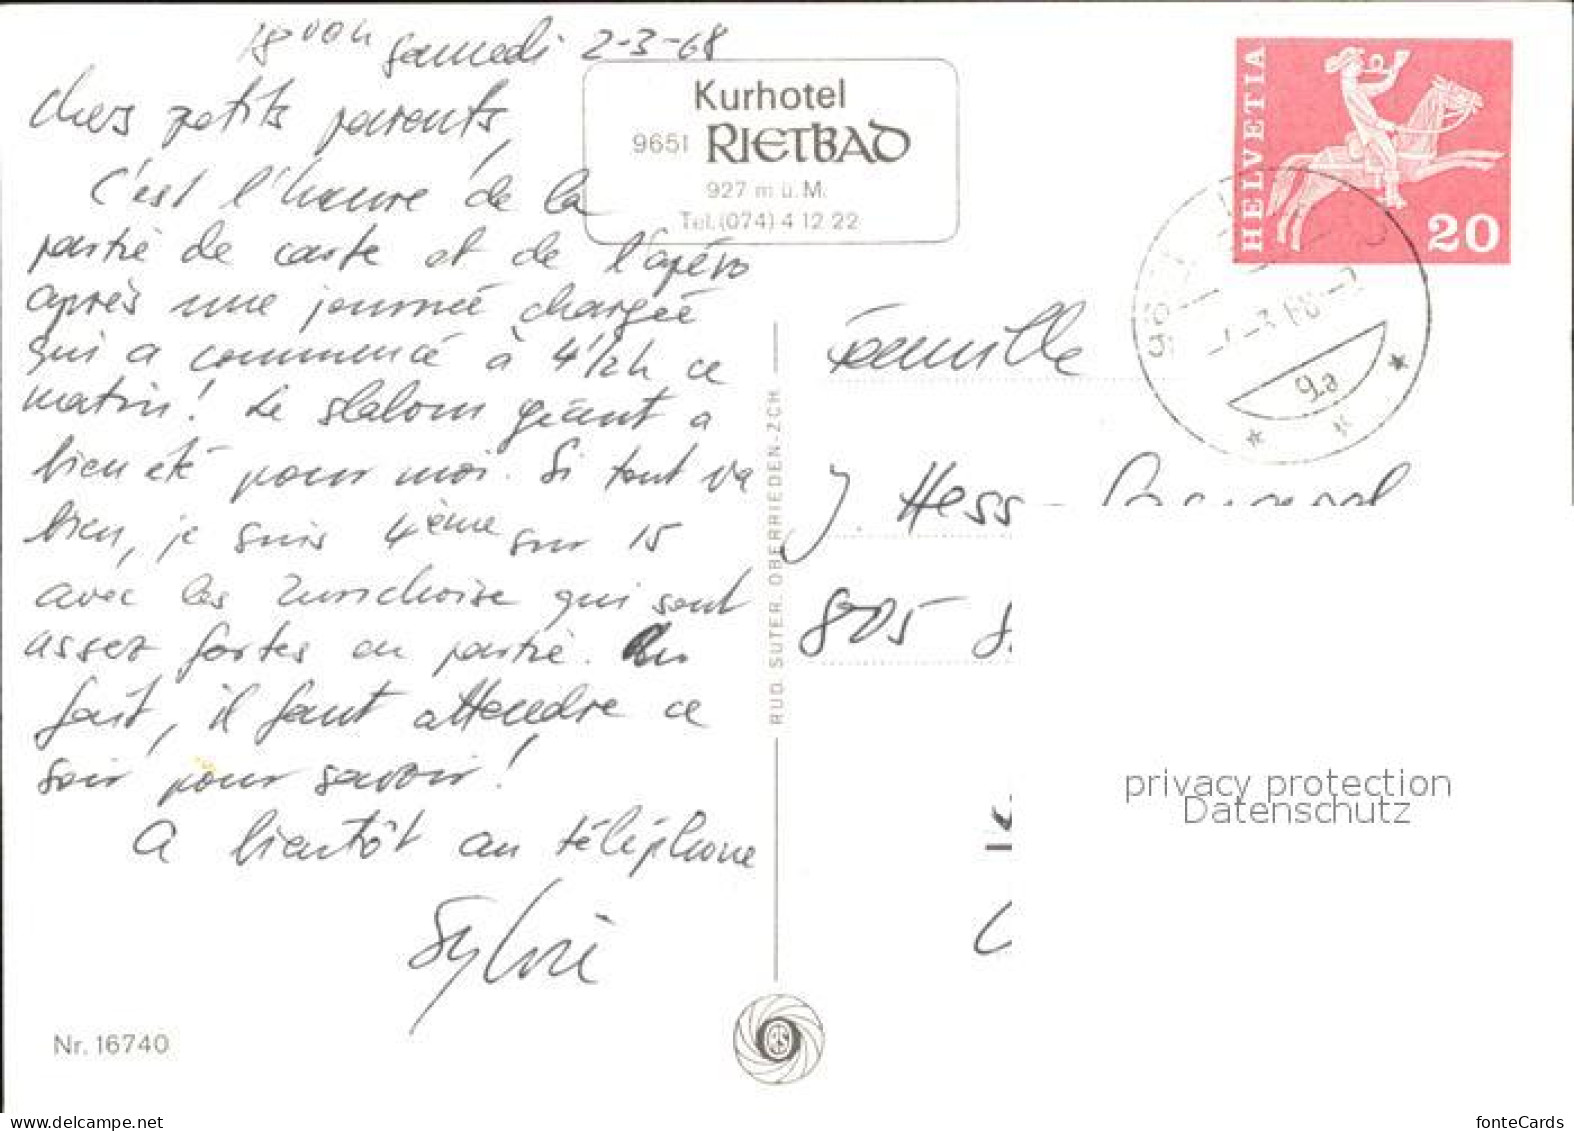 18 00 h samedi 2-3-68
Chers petits parents,
C'est l'heure de la
partie de carte et de l'apéro
après une journée chargée
qui a commencé à 4 1/2 h ce
matin! Le slalom géant a
bien été pour moi. Si tout va
bien, je suis 4ème sur 15
avec les Zurichoise qui sont
assez fortes en partie. En
fait, il faut attendre ce
soir pour savoir!
A bientôt au téléphone
Sylvie
Nr. 16740
Kurhotel
9651 RIETBAD
927 m ü. M.
Tel. (074) 4 12 22
RUD. SUTER, OBERRIEDEN-ZCH
HELVETIA
20
9a
Famille
J. Hess-
805
privacy protection
Datenschutz
www.delcampe.net
fonteCards